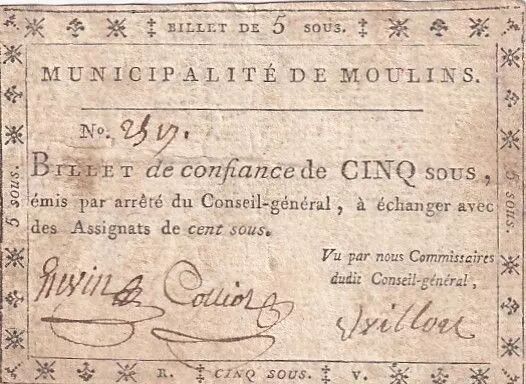 BILLET DE 5 SOUS.
MUNICIPALITÉ DE MOULINS.
No.
BILLET de confiance de CINQ SOUS,
émis par arrêté du Conseil-général, à échanger avec
des Assignats de cent sous.
Vu par nous Commissaires
dudit Conseil-général,
Colliot
5 sous.
5 sous.
R. CINQ SOUS. V.